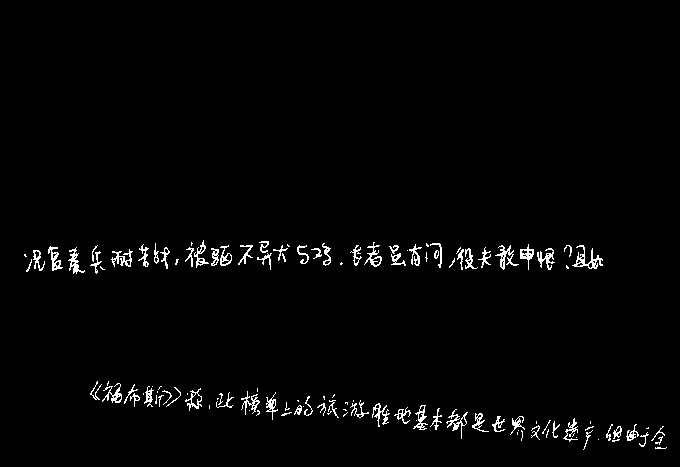 况复秦兵耐苦战,被驱不异犬与鸡.长者虽有问,役夫敢申恨?且如
《福布斯》称,此榜单上的旅游胜地基本都是世界文化遗产.但由于全